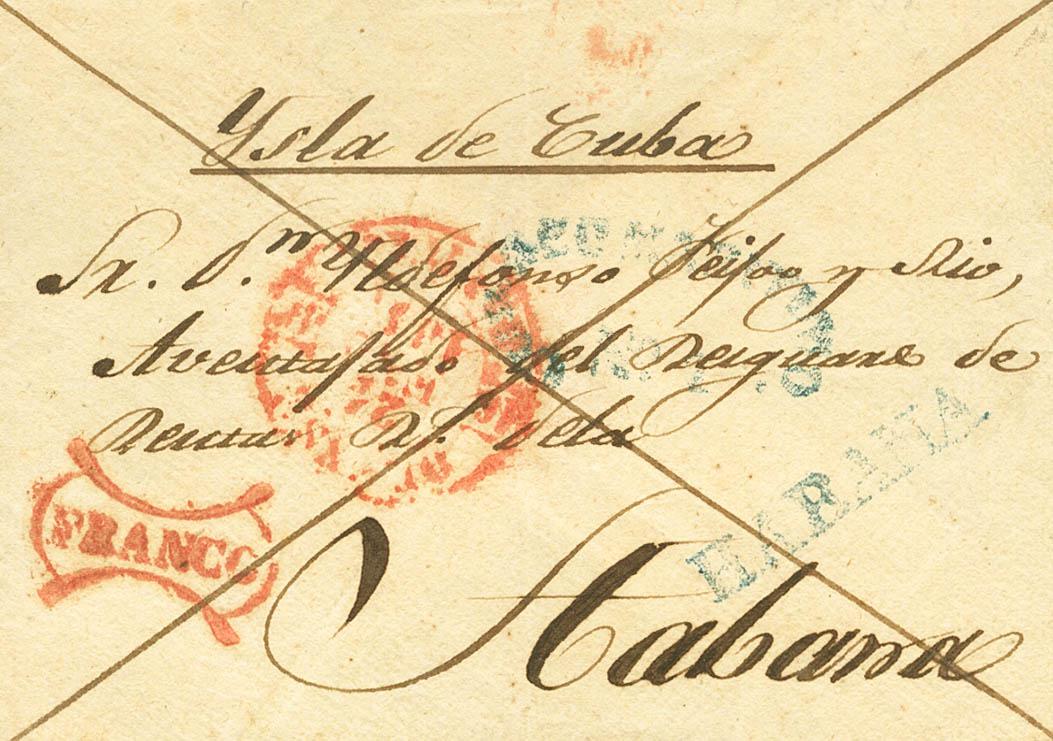 Ysla de Cuba
Sr. D.ⁿ Yldefonso Feijoo y Rio,
Aventajado del Resguardo de
Rentas R.ˢ de la
Habana
FRANCO
HABANA